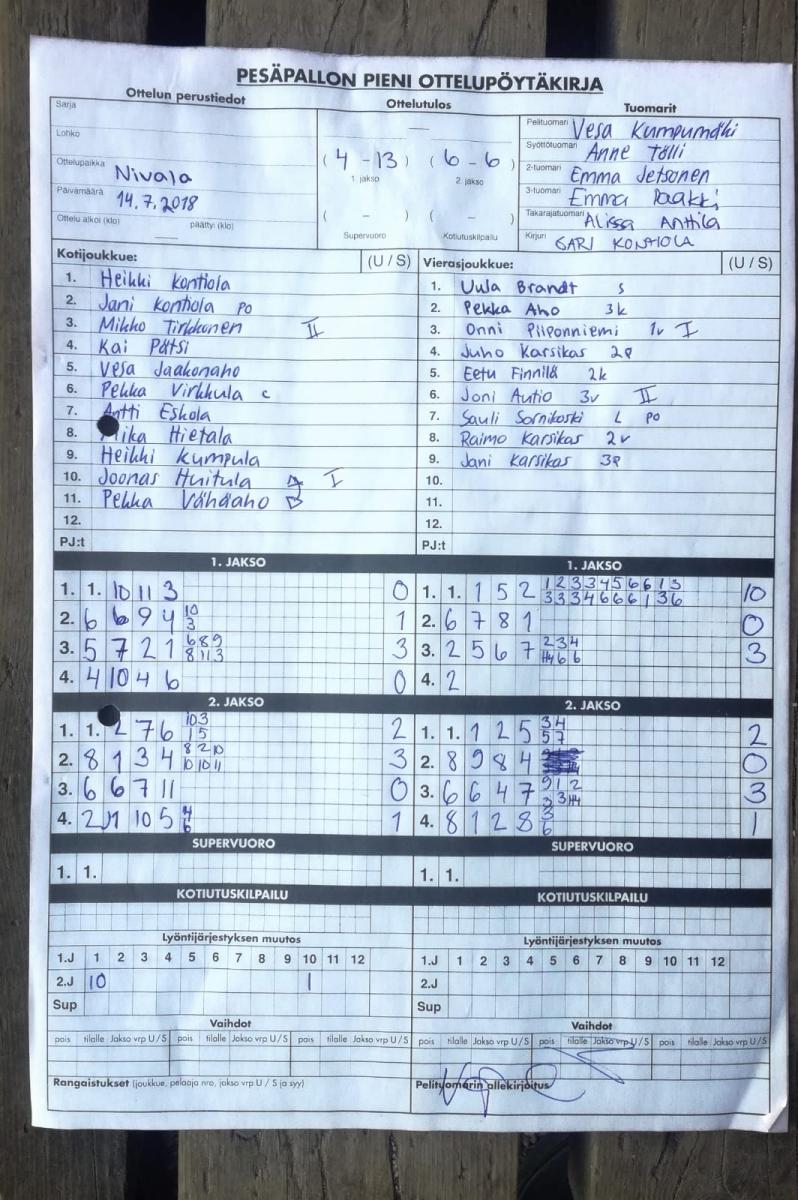 PESÄPALLON PIENI OTTELUPÖYTÄKIRJA
Ottelun perustiedot Ottelutulos Tuomarit
Sarja
Lohko
Ottelupaikka Nivala
Päivämäärä 14.7.2018
Ottelu alkoi (klo) päättyi (klo)
(4 - 13) (6 - 6)
1. jakso 2. jakso
( - ) ( - )
Supervuoro Kotiutuskilpailu
Pelituomari Vesa Kumpumäki
Syöttötuomari Anne Tölli
2-tuomari Emma Jetsonen
3-tuomari Emma Paakki
Takarajatuomari Alissa Anttila
Kirjuri SARI KONTIOLA
Kotijoukkue: (U / S)
1. Heikki Kontiola
2. Jani Kontiola po
3. Mikko Tirkkonen II
4. Kai Pätsi
5. Vesa Jaakonaho
6. Pekka Virkkula c
7. Antti Eskola
8. Mika Hietala
9. Heikki Kumpula
10. Joonas Huitula I
11. Pekka Vähäaho
12.
PJ:t
Vierasjoukkue: (U / S)
1. Uula Brandt s
2. Pekka Aho 3k
3. Onni Piiponniemi 1v I
4. Juho Karsikas 2p
5. Eetu Finnilä 2k
6. Joni Autio 3v II
7. Sauli Sornikoski L po
8. Raimo Karsikas 2v
9. Jani Karsikas 3p
10.
11.
12.
PJ:t
1. JAKSO
1. 1. 10 11 3 0
2. 6 6 9 4 10 1
3
3. 5 7 2 1 6 8 9 3
8 11 3
4. 4 10 4 6 0
1. JAKSO
1. 1. 1 5 2 1 2 3 3 4 5 6 6 1 3 10
3 3 3 4 6 6 6 1 3 6
2. 6 7 8 1 0
3. 2 5 6 7 2 3 4 3
6 6
4. 2
2. JAKSO
1. 1. 2 7 6 10 3 2
1 5
2. 8 1 3 4 8 2 10 3
10 10 11
3. 6 6 7 11 0
4. 2 11 10 5 4 1
6
2. JAKSO
1. 1. 1 2 5 3 4 2
5 7
2. 8 9 8 4 0
3. 6 6 4 7 9 1 2 3
3 3
4. 8 1 2 8 3 1
6
SUPERVUORO SUPERVUORO
1. 1. 1. 1.
KOTIUTUSKILPAILU KOTIUTUSKILPAILU
Lyöntijärjestyksen muutos
1.J 1 2 3 4 5 6 7 8 9 10 11 12
2.J 10 1
Sup
Lyöntijärjestyksen muutos
1.J 1 2 3 4 5 6 7 8 9 10 11 12
2.J
Sup
Vaihdot
pois tilalle Jakso vrp U / S pois tilalle Jakso vrp U / S pois tilalle Jakso vrp U / S
Vaihdot
pois tilalle Jakso vrp U / S pois tilalle Jakso vrp U / S pois tilalle Jakso vrp U / S
Rangaistukset (joukkue, pelaaja nro, jakso vrp U / S ja syy)
Pelituomarin allekirjoitus